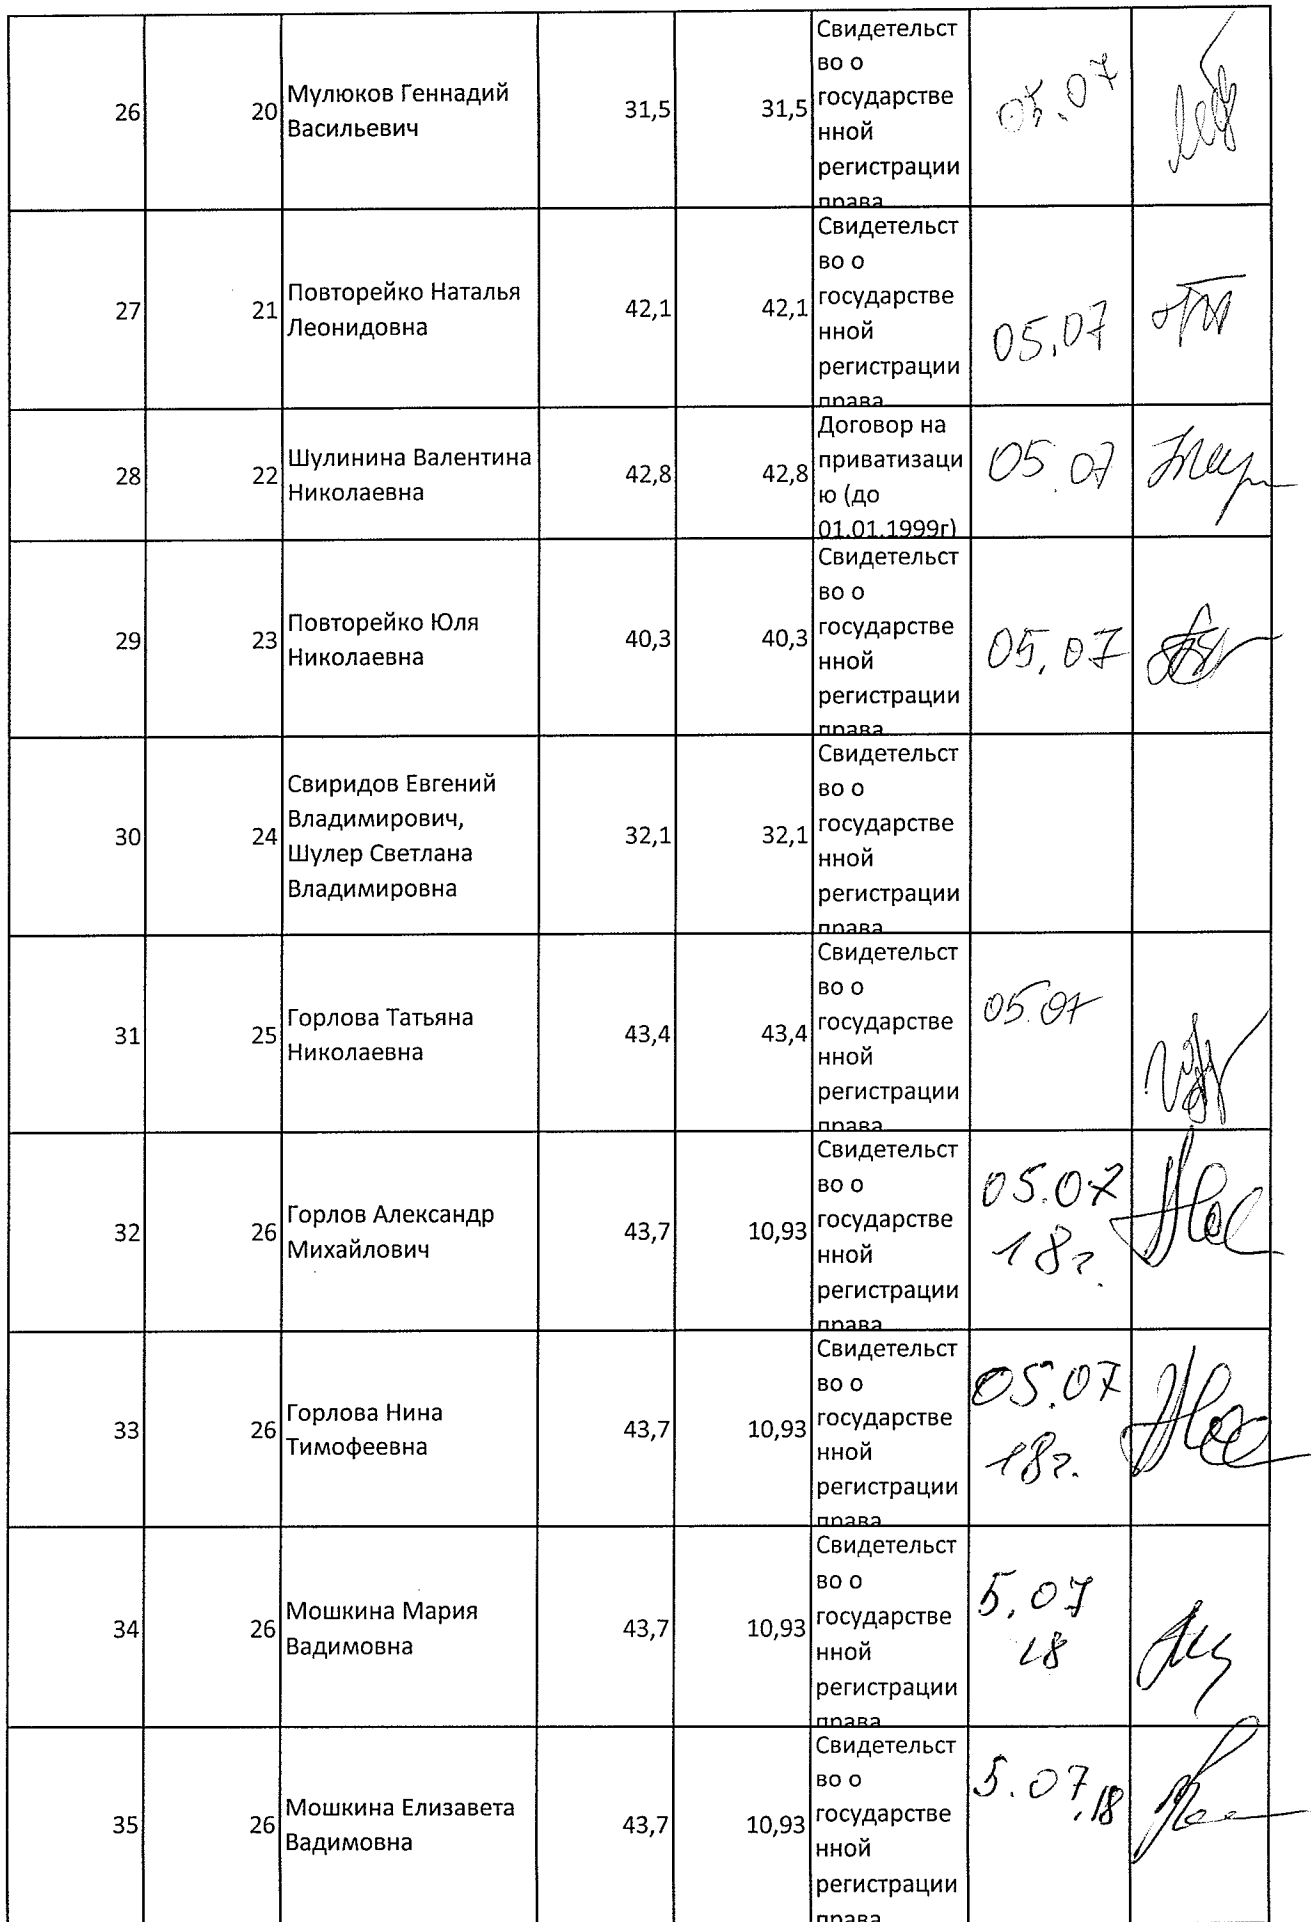 26
20
Мулюков Геннадий
Васильевич
31,5
31,5
Свидетельст
во о
государстве
нной
регистрации
права
05.07
27
21
Повторейко Наталья
Леонидовна
42,1
42,1
Свидетельст
во о
государстве
нной
регистрации
права
05.07
28
22
Шулинина Валентина
Николаевна
42,8
42,8
Договор на
приватизаци
ю (до
01.01.1999г)
05.07
29
23
Повторейко Юля
Николаевна
40,3
40,3
Свидетельст
во о
государстве
нной
регистрации
права
05.07
30
24
Свиридов Евгений
Владимирович,
Шулер Светлана
Владимировна
32,1
32,1
Свидетельст
во о
государстве
нной
регистрации
права
31
25
Горлова Татьяна
Николаевна
43,4
43,4
Свидетельст
во о
государстве
нной
регистрации
права
05.07
32
26
Горлов Александр
Михайлович
43,7
10,93
Свидетельст
во о
государстве
нной
регистрации
права
05.07
18г.
33
26
Горлова Нина
Тимофеевна
43,7
10,93
Свидетельст
во о
государстве
нной
регистрации
права
05.07
18г.
34
26
Мошкина Мария
Вадимовна
43,7
10,93
Свидетельст
во о
государстве
нной
регистрации
права
5.07
18
35
26
Мошкина Елизавета
Вадимовна
43,7
10,93
Свидетельст
во о
государстве
нной
регистрации
права
5.07.18